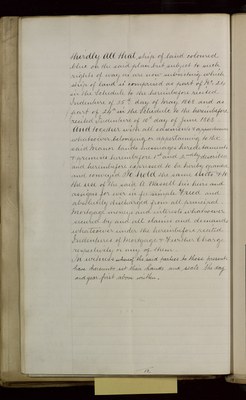 thirdly all that strip of land coloured
blue on the said plan but subject to such
rights of way as are now subsisting which
strip of land is comprised as part of No. 24
in the Schedule to the hereinbefore recited
Indenture of 15th day of May 1868 and as
part of 24 in the Schedule to the hereinbefore
recited Indenture of 10th day of June 1902
And together with all easements & appurtenances
whatsoever belonging or appertaining to the
said manor lands messuages hereditaments
& premises hereinbefore 1st and 2ndly described
and hereinbefore expressed to be hereby granted
and conveyed To hold the same Unto & To
the use of the said his heirs and
assigns for ever in fee simple Freed and
absolutely discharged from all principal
mortgage moneys and interest whatsoever
secured by and all claims and demands
whatsoever under the hereinbefore recited
Indentures of Mortgage & Further Charge
respectively or any of them
In witness whereof the said parties to these presents
have hereunto set their hands and seals the day
and year first above written.